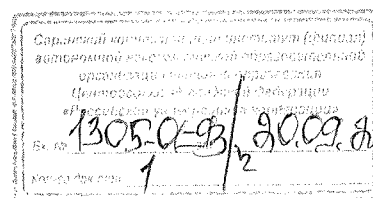 Саранский кооперативный институт (филиал)
автономной некоммерческой образовательной
организации высшего образования
Центросоюза Российской Федерации
«Российский университет кооперации»
Вх. № 1305-01-93/2 20.09.2
Кол-во док-тов 1